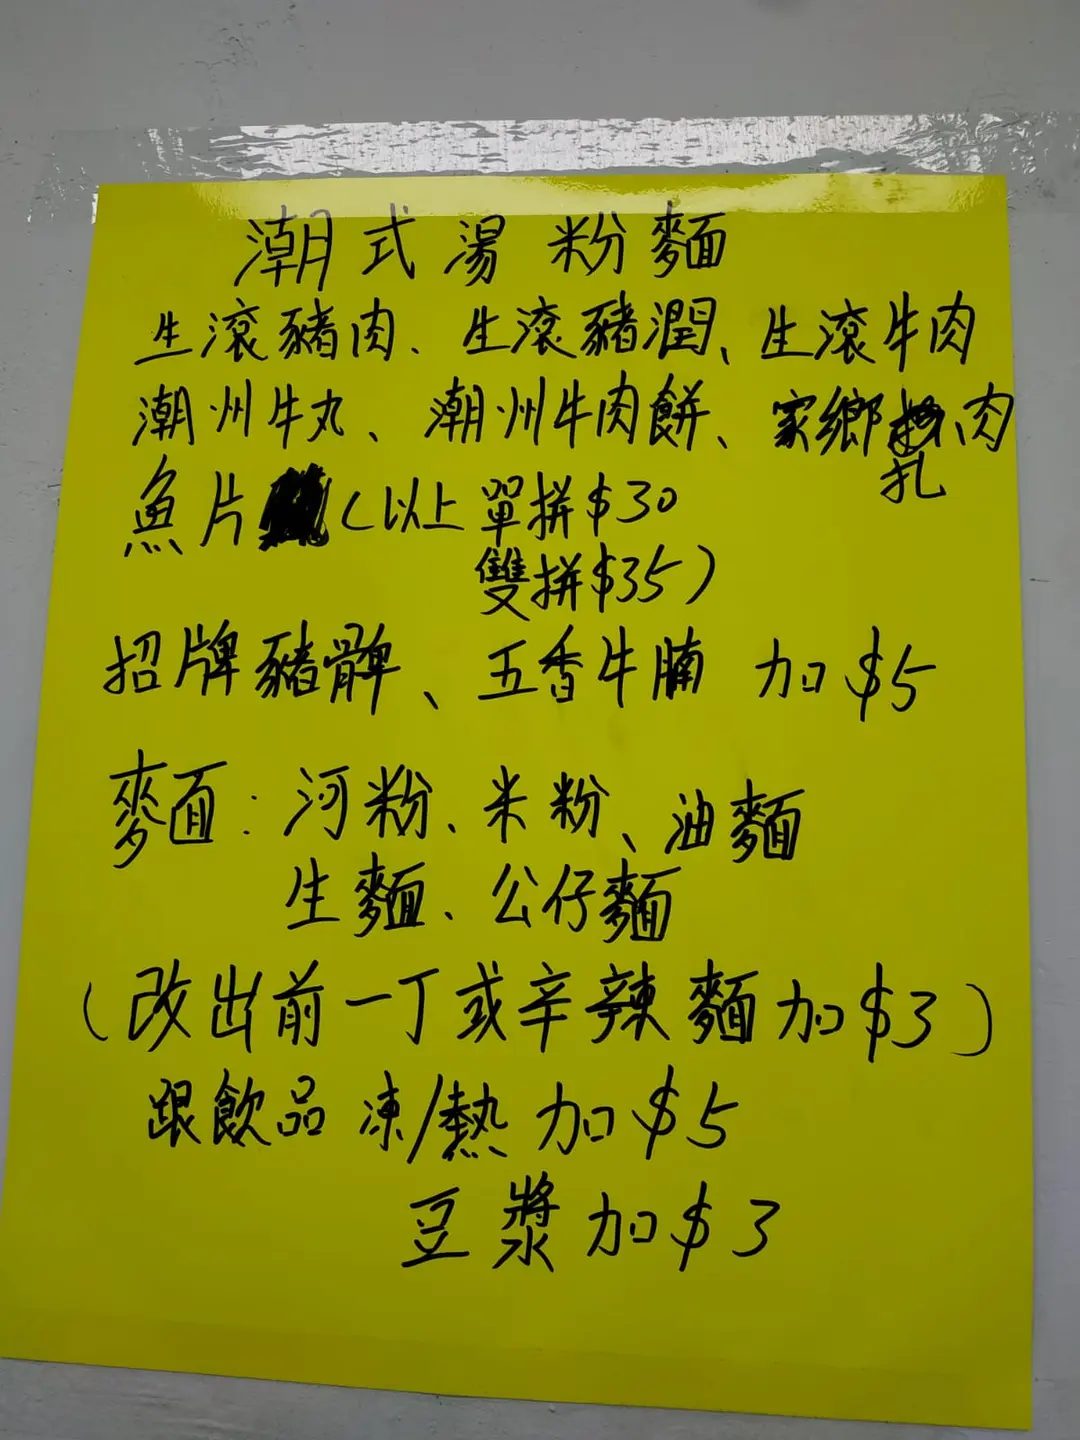 潮式湯粉麵
生滾豬肉、生滾豬潤、生滾牛肉
潮州牛丸、潮州牛肉餅、家鄉扎肉
魚片(以上單拼$30
雙拼$35)
招牌豬髀、五香牛腩 加$5
麥面:河粉、米粉、油麵
生麵、公仔麵
(改出前一丁或辛辣麵加$3)
跟飲品 凍/熱 加$5
豆漿加$3